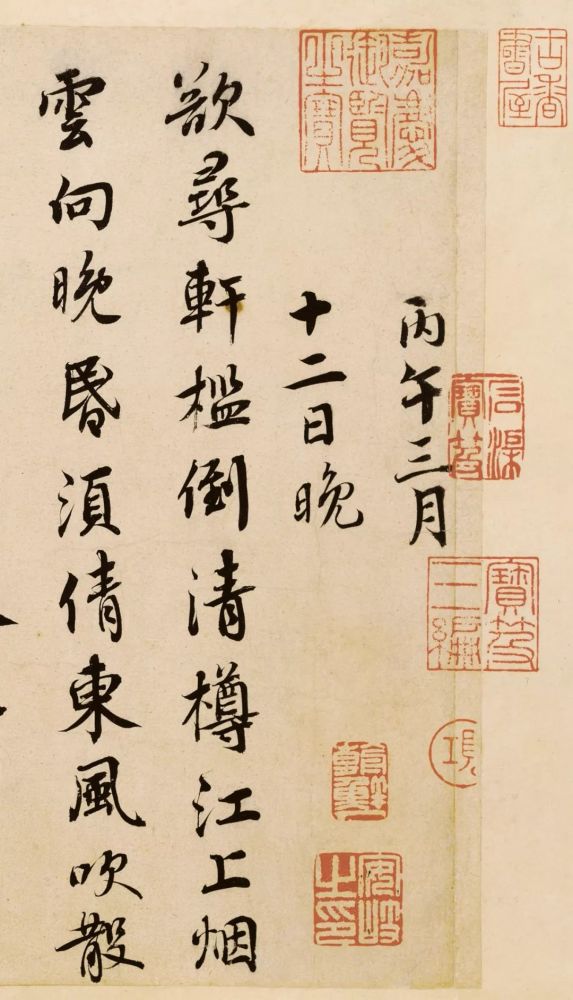 古香書屋
嘉慶御覽之寶
石渠寶笈
寶笈三編
丙午三月
十二日晚
安岐之印
欲尋軒檻倒清樽江上烟
雲向晚昬須倩東風吹散